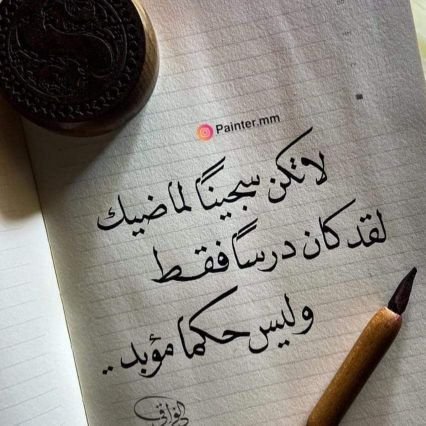 Painter.mm
لا تكن سجينًا لماضيك
لقد كان درسًا فقط
وليس حكما مؤبد ..